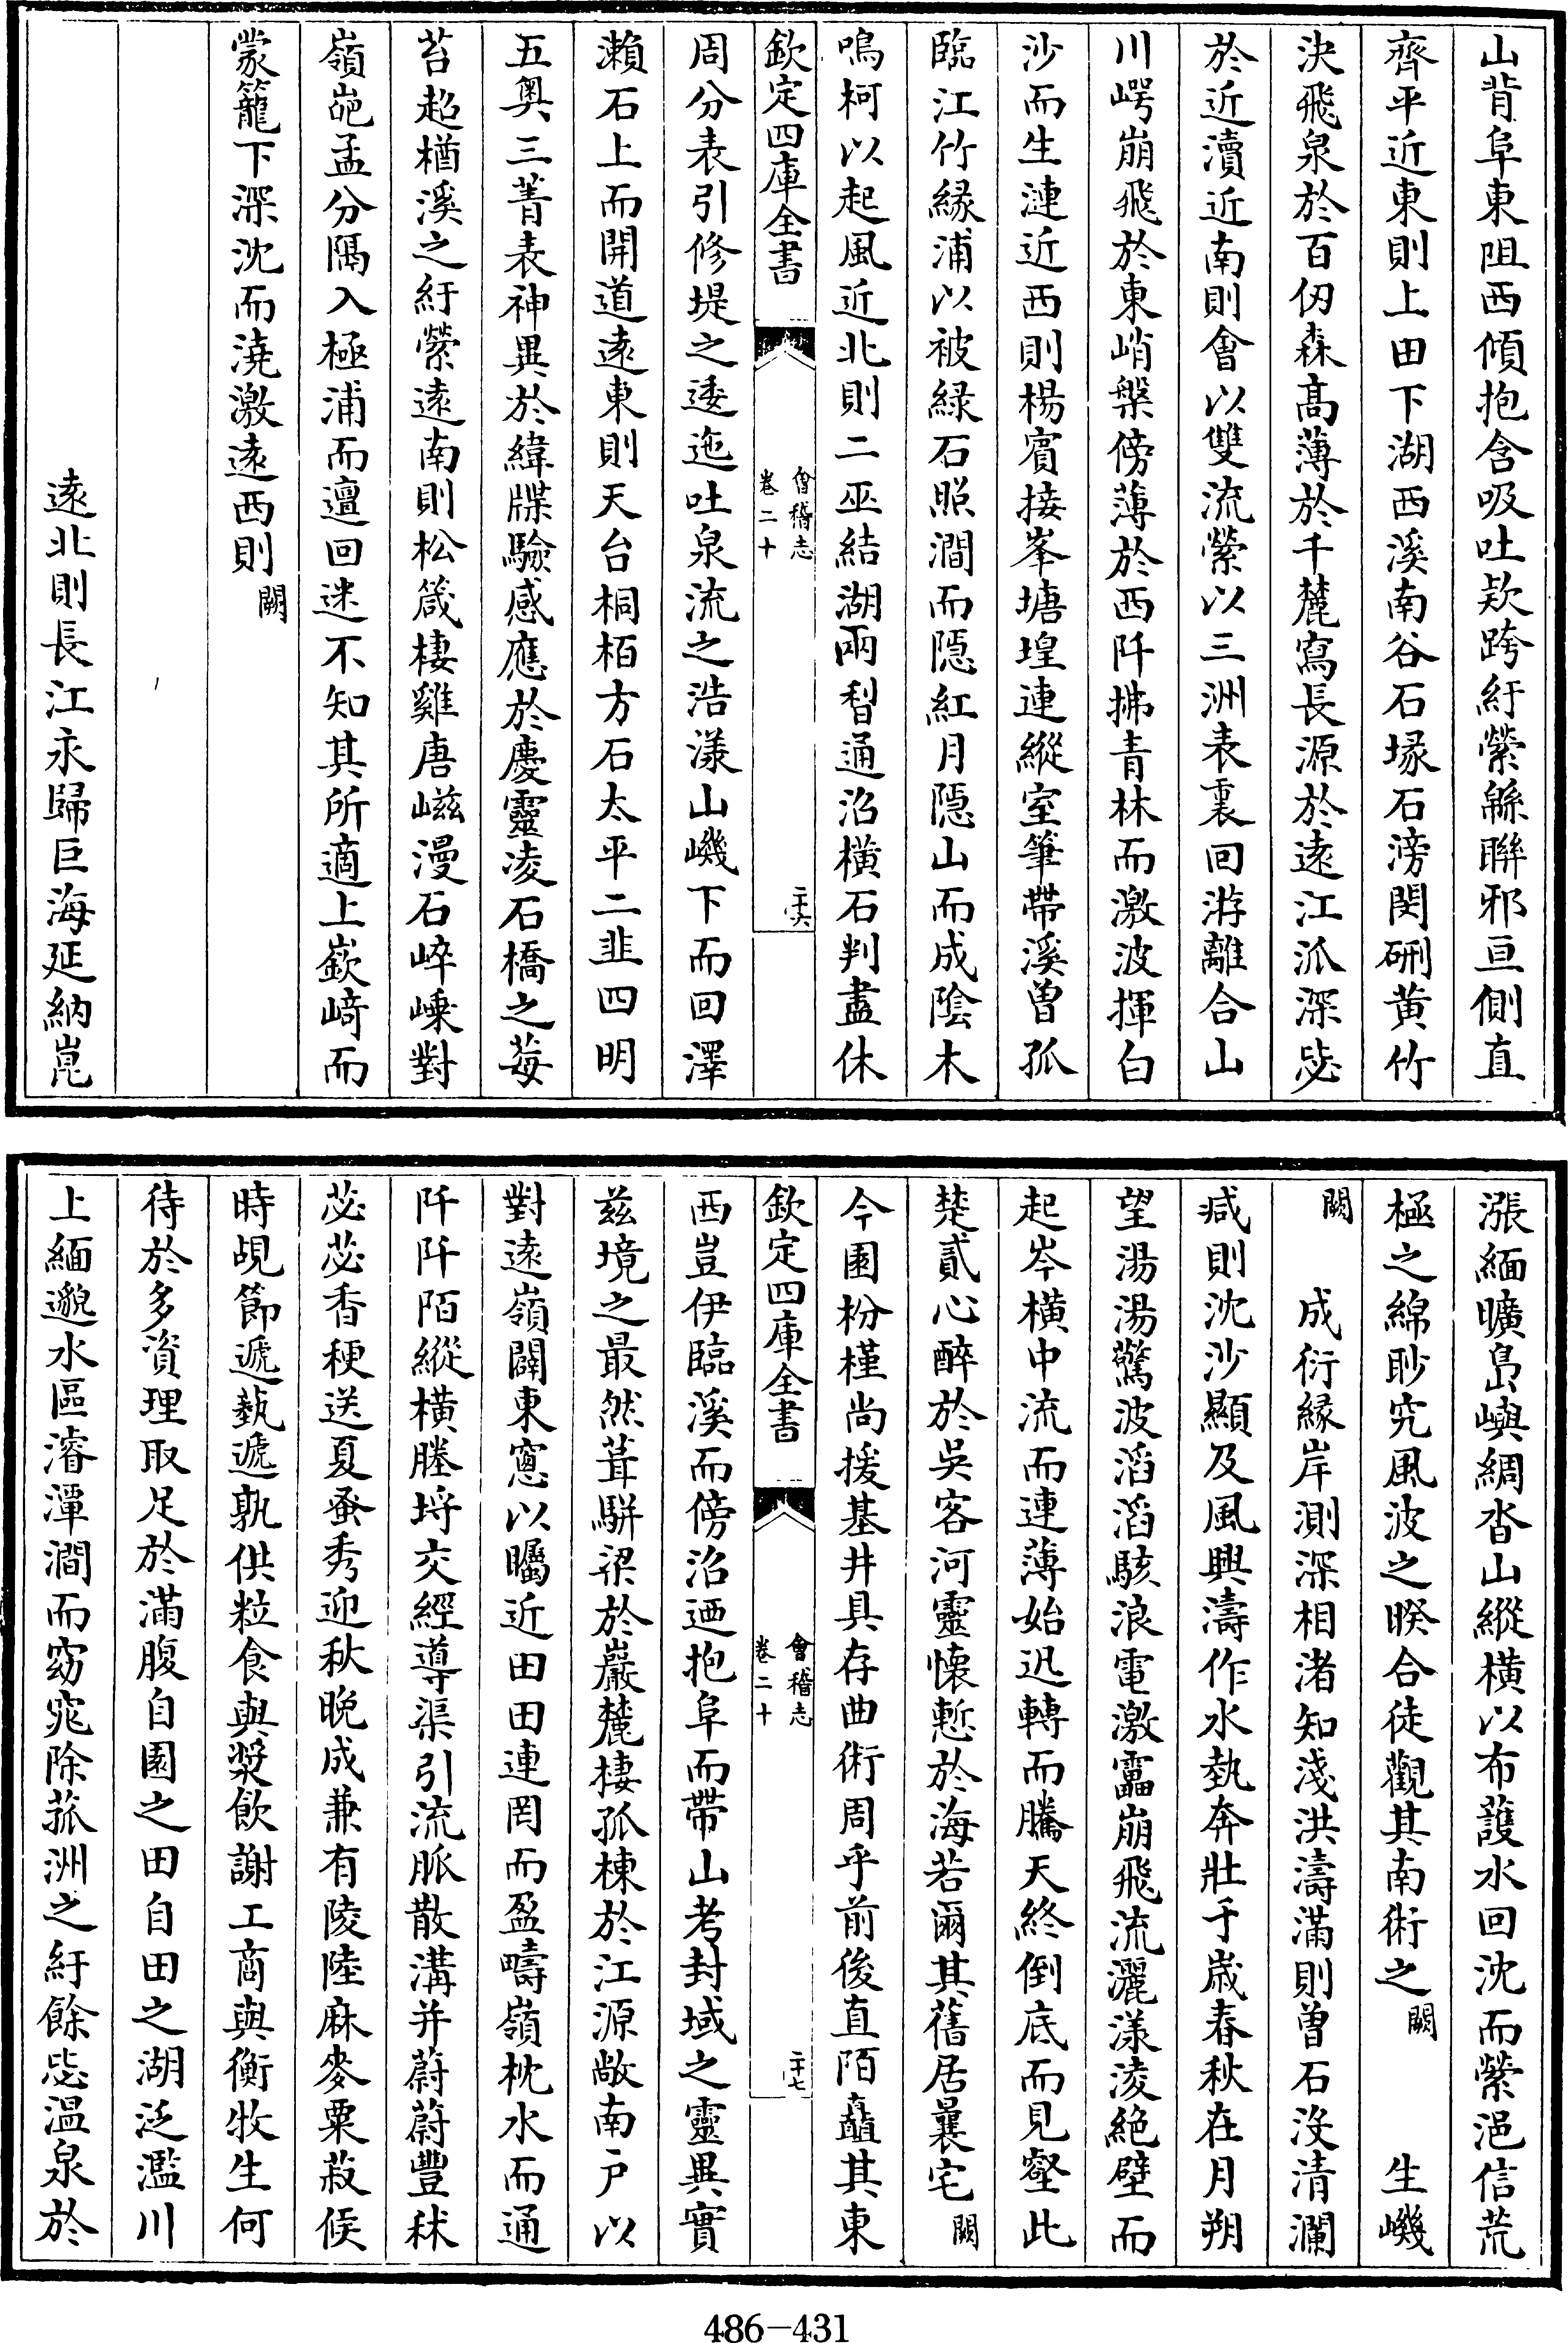 山背阜東阻西傾抱含吸吐欵跨紆縈緜聯邪亘側直
齊平近東則上田下湖西溪南谷石㙇石滂閔硎黄竹
決飛泉於百仞森高薄於千麓寫長源於遠江派深毖
於近瀆近南則會以雙流縈以三洲表裏回游離合山
川崿崩飛於東峭槃傍薄於西阡拂青林而激波揮白
沙而生漣近西則楊賔接峯塘堭連縱室筆帶溪曽孤
臨江竹緣浦以被緑石照澗而隠紅月隠山而成陰木
鳴柯以起風近北則二巫結湖兩㓲通沼橫石判盡休
欽定四庫全書
會稽志
卷二十
二十六
周分表引修堤之逶迤吐泉流之浩漾山巇下而回澤
瀨石上而開道逺東則天台桐栢方石太平二韭四明
五奥三菁表神異於緯牒驗感應於慶靈凌石橋之莓
苔超楢溪之紆縈逺南則松箴棲雞唐嵫漫石崪嵊對
嶺㟅孟分隔入極浦而邅回迷不知其所適上嶔﨑而
蒙籠下深沈而澆激逺西則
闕
逺北則長江永歸巨海延納崑
漲緬曠島嶼綢沓山縱橫以布䕶水回沈而縈浥信荒
極之綿眇究風波之暌合徒觀其南術之
闕
生巇
闕
成衍緣岸測深相渚知淺洪濤滿則曽石沒清瀾
减則沈沙顯及風興濤作水埶奔壯于嵗春秋在月朔
望湯湯驚波滔滔駭浪電激靁崩飛流灑漾淩絶壁而
起岑橫中流而連薄始迅轉而騰天終倒底而見壑此
楚貳心醉於吳客河靈懐慙於海若爾其舊居曩宅
闕
今園枌槿尚援基井具存曲術周乎前後直陌矗其東
欽定四庫全書
會稽志
卷二十
二十七
西豈伊臨溪而傍沼迺抱阜而帶山考封域之靈異實
兹境之最然葺駢梁於巖麓棲孤棟於江源敞南戸以
對逺嶺闢東窓以矚近田田連岡而盈疇嶺枕水而通
阡阡陌縱橫塍埒交經導渠引流脈散溝并蔚蔚豐秫
苾苾香稉送夏蚤秀迎秋晚成兼有陵陸麻麥粟菽候
時覘節遞蓺遞孰供粒食與漿飲謝工商與衡牧生何
待於多資理取足於滿腹自園之田自田之湖泛濫川
上緬邈水區濬潭澗而窈窕除菰洲之紆餘毖温泉於
486-431